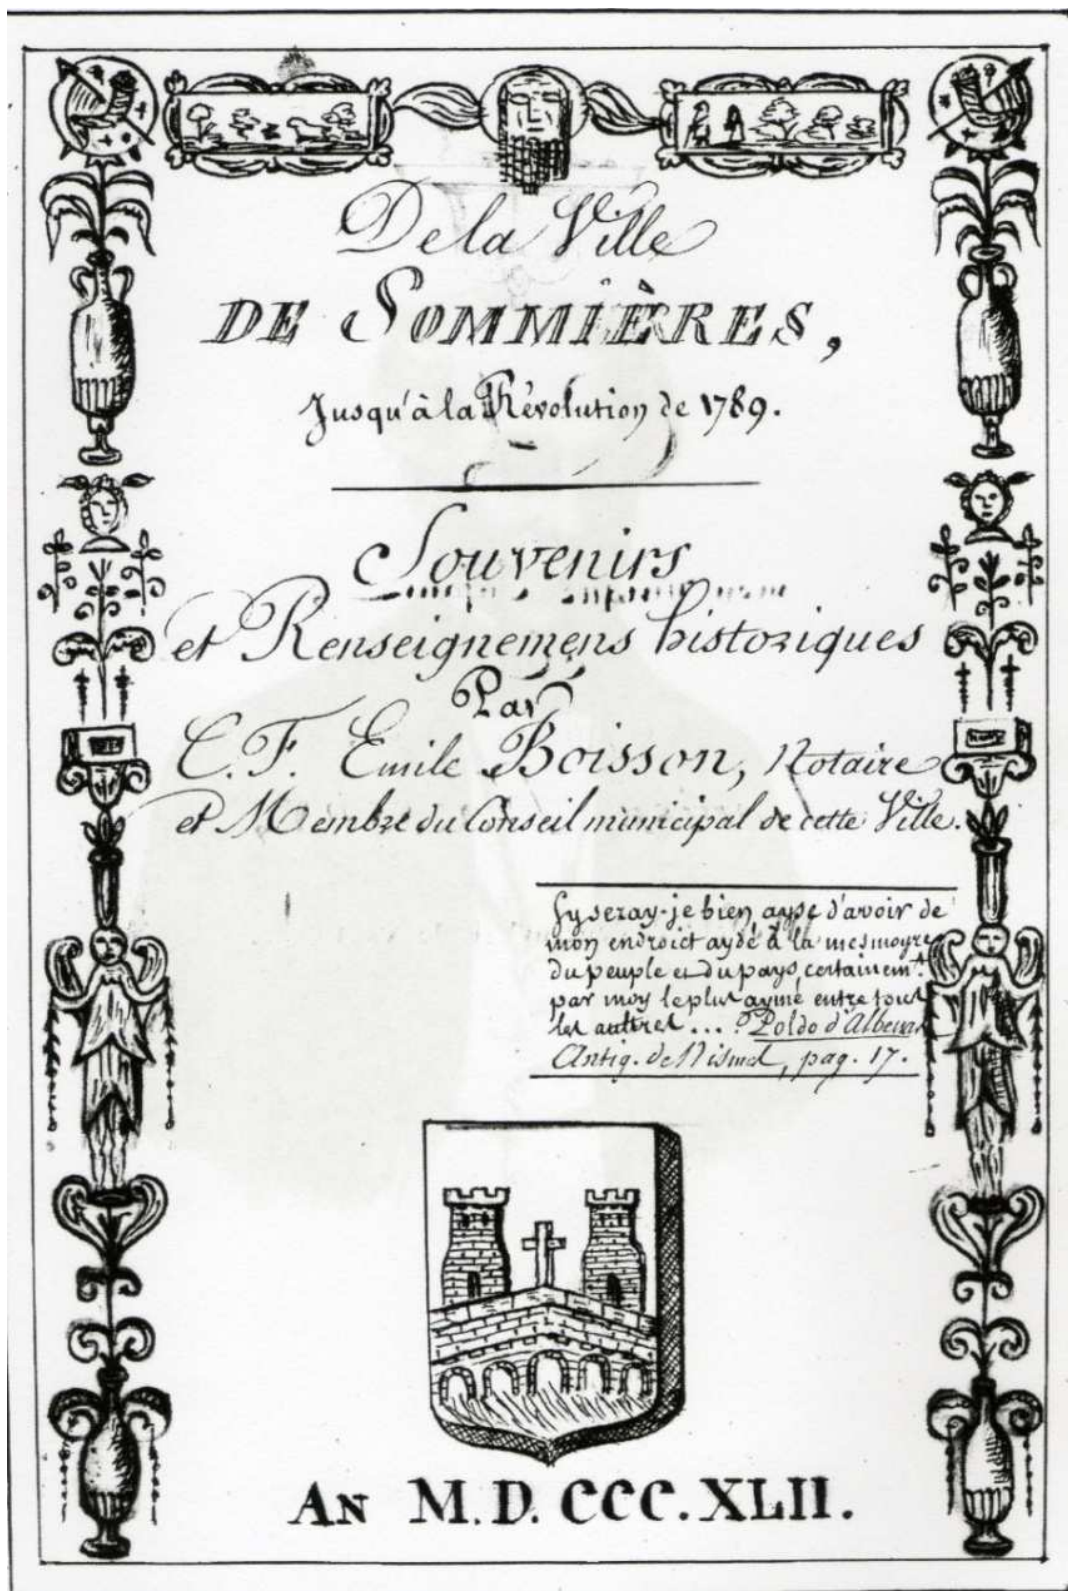 De la Ville
DE SOMMIÈRES,
Jusqu'à la Révolution de 1789.
Souvenirs
et Renseignemens historiques
Par
C. F. Emile Boisson, Notaire
et Membre du Conseil municipal de cette Ville.
sy seray-je bien ayse d'avoir de
mon endroict aydé à la mesmoyre
du peuple et du pays, certainemt.
par moy le plus aymé entre tous
les aultres ... Poldo d'Albenas
Antiq. de Nismes, pag. 17.
AN M.D.CCC.XLII.